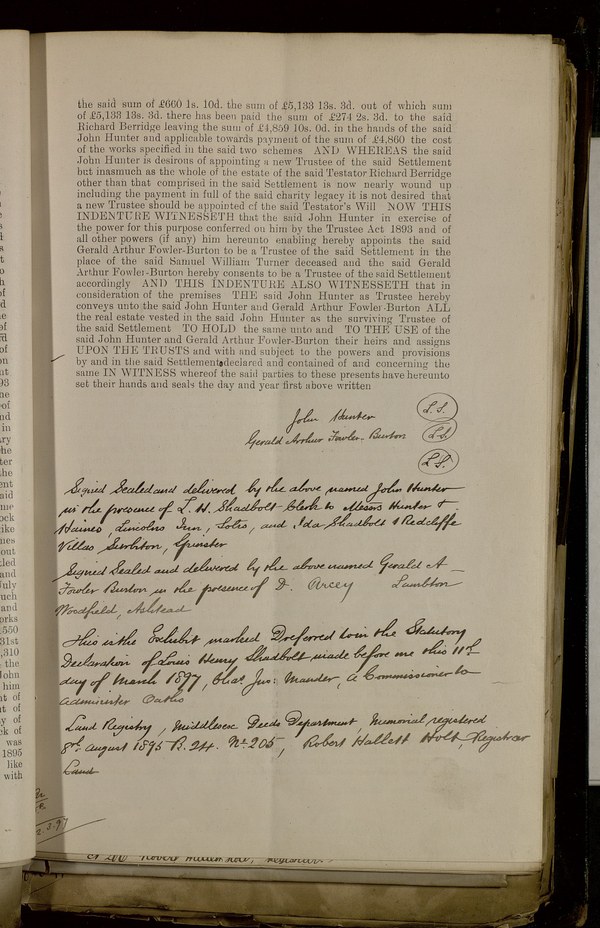 the said sum of £660 1s. 10d. the sum of £5,133 13s. 3d. out of which sum
of £5,133 13s. 3d. there has been paid the sum of £274 2s. 3d. to the said
Richard Berridge leaving the sum of £4,859 10s. 0d. in the hands of the said
John Hunter and applicable towards payment of the sum of £4,860 the cost
of the works specified in the said two schemes AND WHEREAS the said
John Hunter is desirous of appointing a new Trustee of the said Settlement
but inasmuch as the whole of the estate of the said Testator Richard Berridge
other than that comprised in the said Settlement is now nearly wound up
including the payment in full of the said charity legacy it is not desired that
a new Trustee should be appointed of the said Testator's Will NOW THIS
INDENTURE WITNESSETH that the said John Hunter in exercise of
the power for this purpose conferred on him by the Trustee Act 1893 and of
all other powers (if any) him hereunto enabling hereby appoints the said
Gerald Arthur Fowler-Burton to be a Trustee of the said Settlement in the
place of the said Samuel William Turner deceased and the said Gerald
Arthur Fowler-Burton hereby consents to be a Trustee of the said Settlement
accordingly AND THIS INDENTURE ALSO WITNESSETH that in
consideration of the premises THE said John Hunter as Trustee hereby
conveys unto the said John Hunter and Gerald Arthur Fowler-Burton ALL
the real estate vested in the said John Hunter as the surviving Trustee of
the said Settlement TO HOLD the same unto and TO THE USE of the
said John Hunter and Gerald Arthur Fowler-Burton their heirs and assigns
UPON THE TRUSTS and with and subject to the powers and provisions
by and in the said Settlement declared and contained of and concerning the
same IN WITNESS whereof the said parties to these presents have hereunto
set their hands and seals the day and year first above written
John Hunter L.S.
Gerald Arthur Fowler-Burton L.S.
L.S.
Signed Sealed and delivered by the above named John Hunter
in the presence of L. H. Shadbolt Clerk to Messrs Hunter &
Haines, Lincolns Inn, Solrs, and Ida Shadbolt 1 Redcliffe
Villas Surbiton, Spinster
Signed Sealed and delivered by the above named Gerald A
Fowler Burton in the presence of D. Arcey Lambton
Woodfield, Ashtead
This is the Exhibit marked D referred to in the Statutory
Declaration of Louis Henry Shadbolt made before me this 11th
day of March 1897, Chas. Jno: Mander, a Commissioner to
administer Oaths
Land Registry, Middlesex Deeds Department, Memorial registered
8th August 1895 B. 24. No. 205, Robert Hallett Holt, Registrar
Land